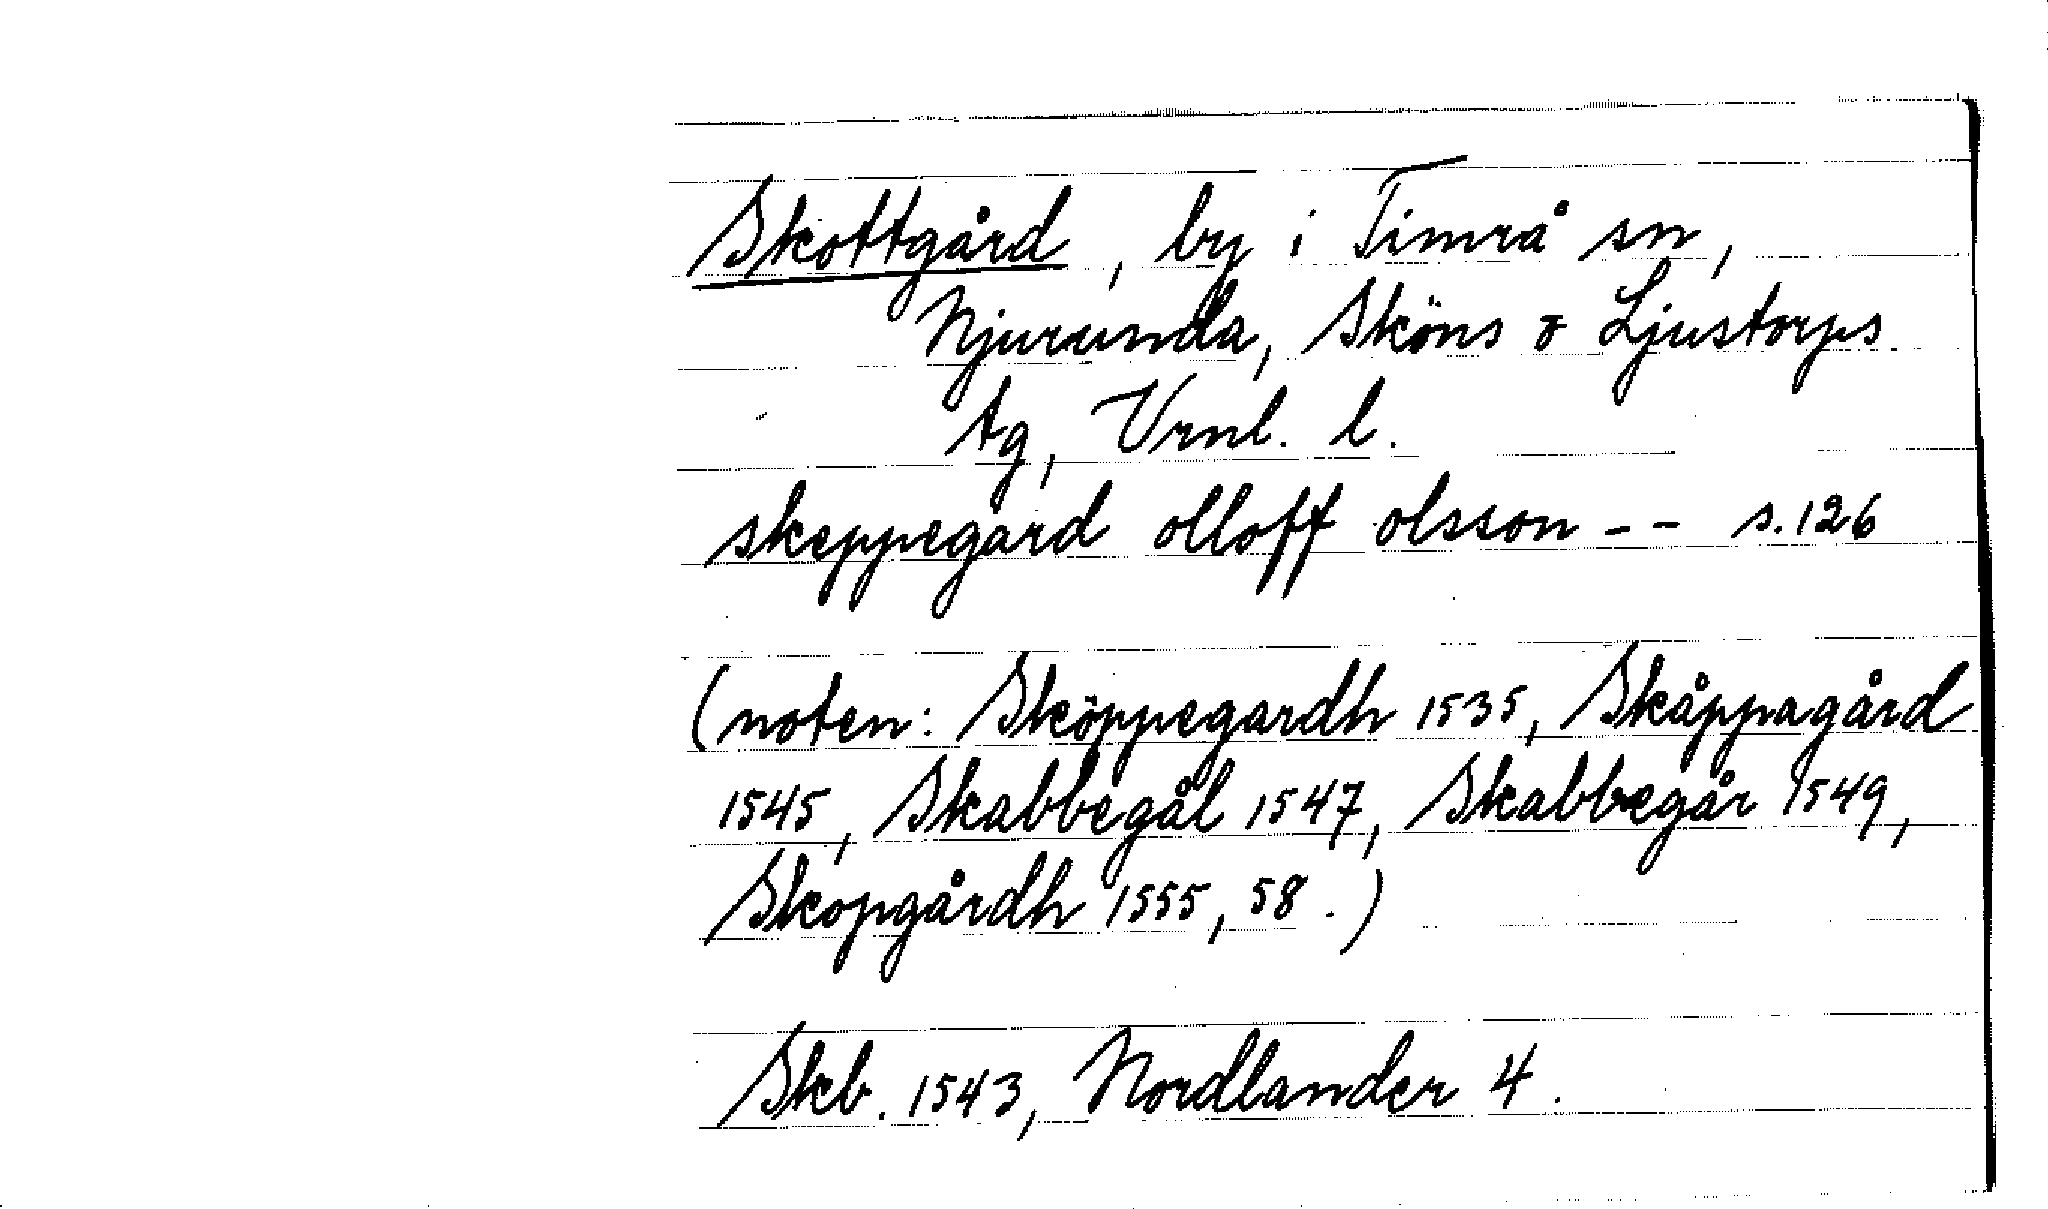 Skottgård, by i Timrå sn,
Njurunda, Sköns o Ljustorps
tg, Vrnl. l.
skeppegård olloff olsson -- s. 126
(noten: Sköppegardh 1535, Skåppagård
1545, Skabbegål 1547, Skabbegår 1549,
Skopgårdh 1555, 58.)
Skb. 1543, Nordlander 4.